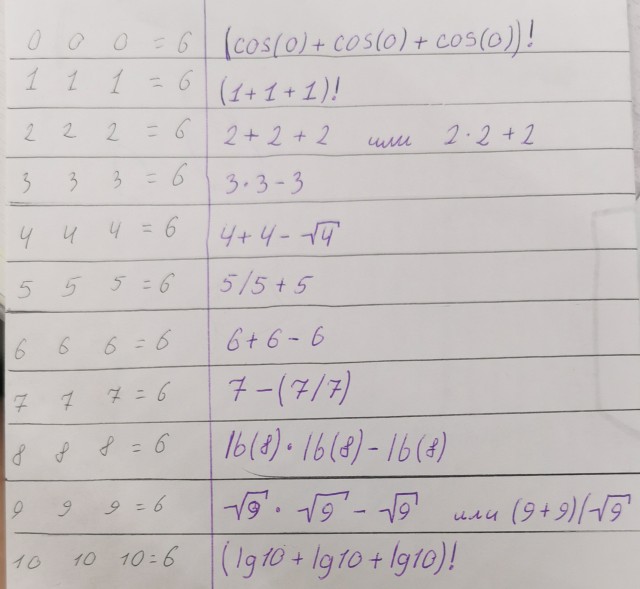 0 0 0 = 6 (cos(0) + cos(0) + cos(0))!
1 1 1 = 6 (1+1+1)!
2 2 2 = 6 2 + 2 + 2 или 2·2+2
3 3 3 = 6 3·3-3
4 4 4 = 6 4+4-√4
5 5 5 = 6 5/5+5
6 6 6 = 6 6+6-6
7 7 7 = 6 7-(7/7)
8 8 8 = 6 lb(8)·lb(8)-lb(8)
9 9 9 = 6 √9·√9-√9 или (9+9)/√9
10 10 10 = 6 (lg10+lg10+lg10)!